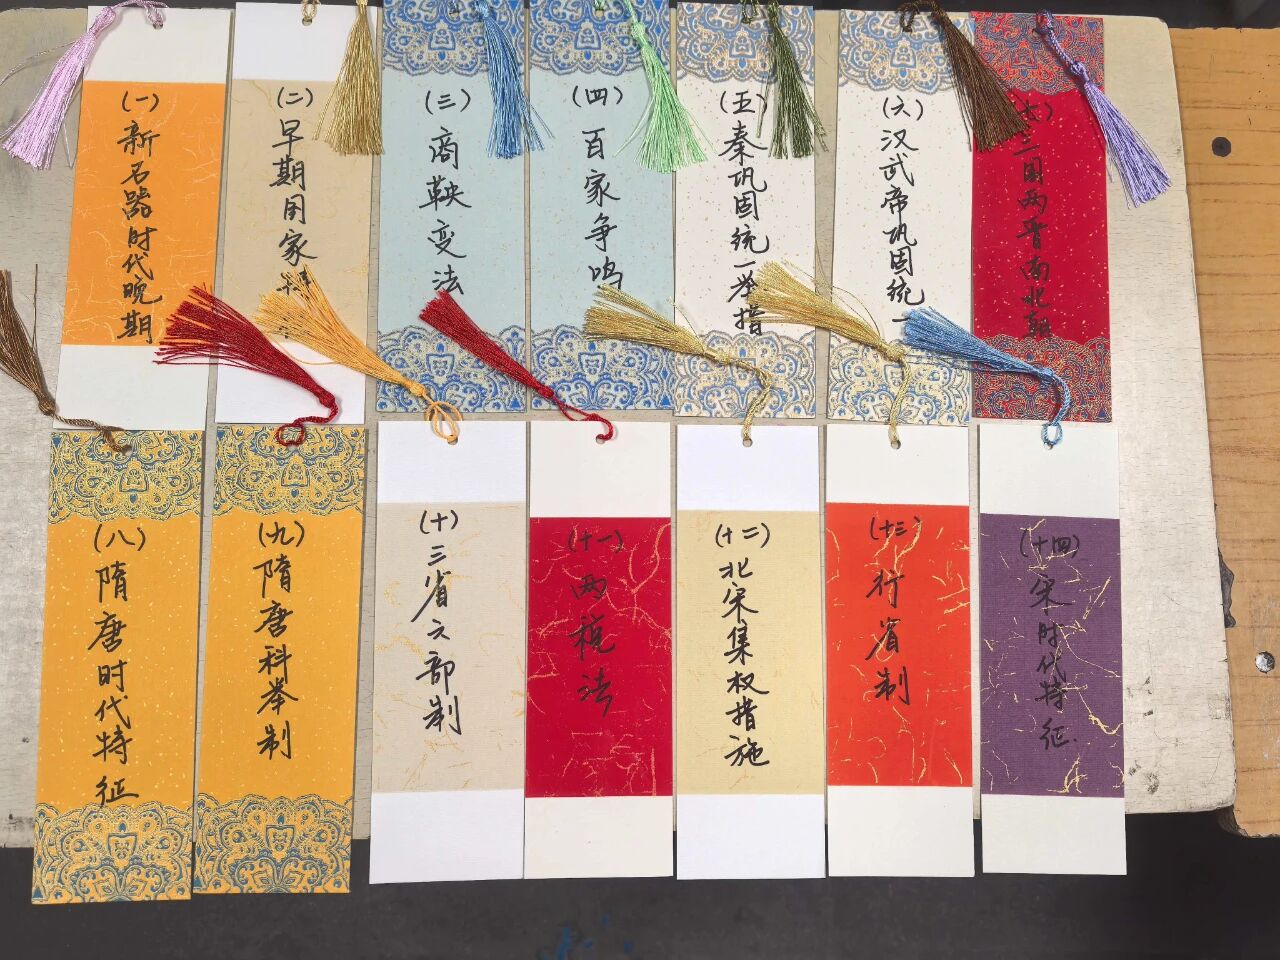 (一)新名器时代晚期
(二)早期国家特
(三)商鞅变法
(四)百家争鸣
(五)秦巩固统一举措
(六)汉武帝巩固统一
(七)三国两晋南北朝
(八)隋唐时代特征
(九)隋唐科举制
(十)三省六部制
(十一)两税法
(十二)北宋集权措施
(十三)行省制
(十四)宋时代特征.